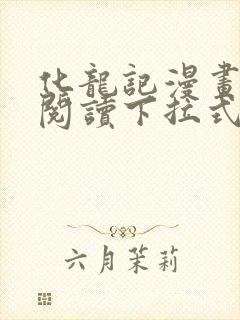 化龍記漫畫
閱讀下拉式
六月茉莉